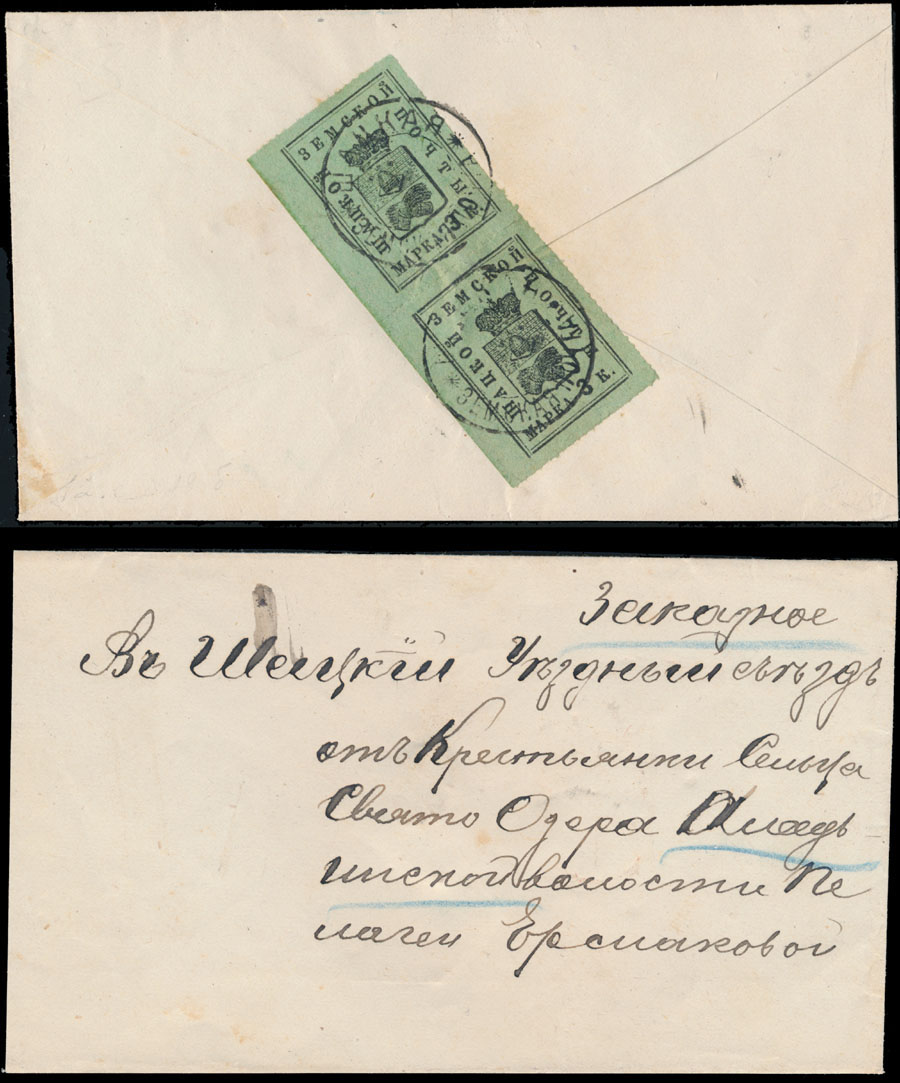 ЗЕМСКОЙ
ПОЧТЫ.
ШАЦКОЙ
МАРКА 3 К.
ЗЕМСКОЙ
ШАЦКОЙ
МАРКА 3 К.
Заказное
Въ Шацкій Уѣздный съѣздъ
отъ Крестьянки Сельца
Свято Озера
волости Пе
лагеи Ермаковой